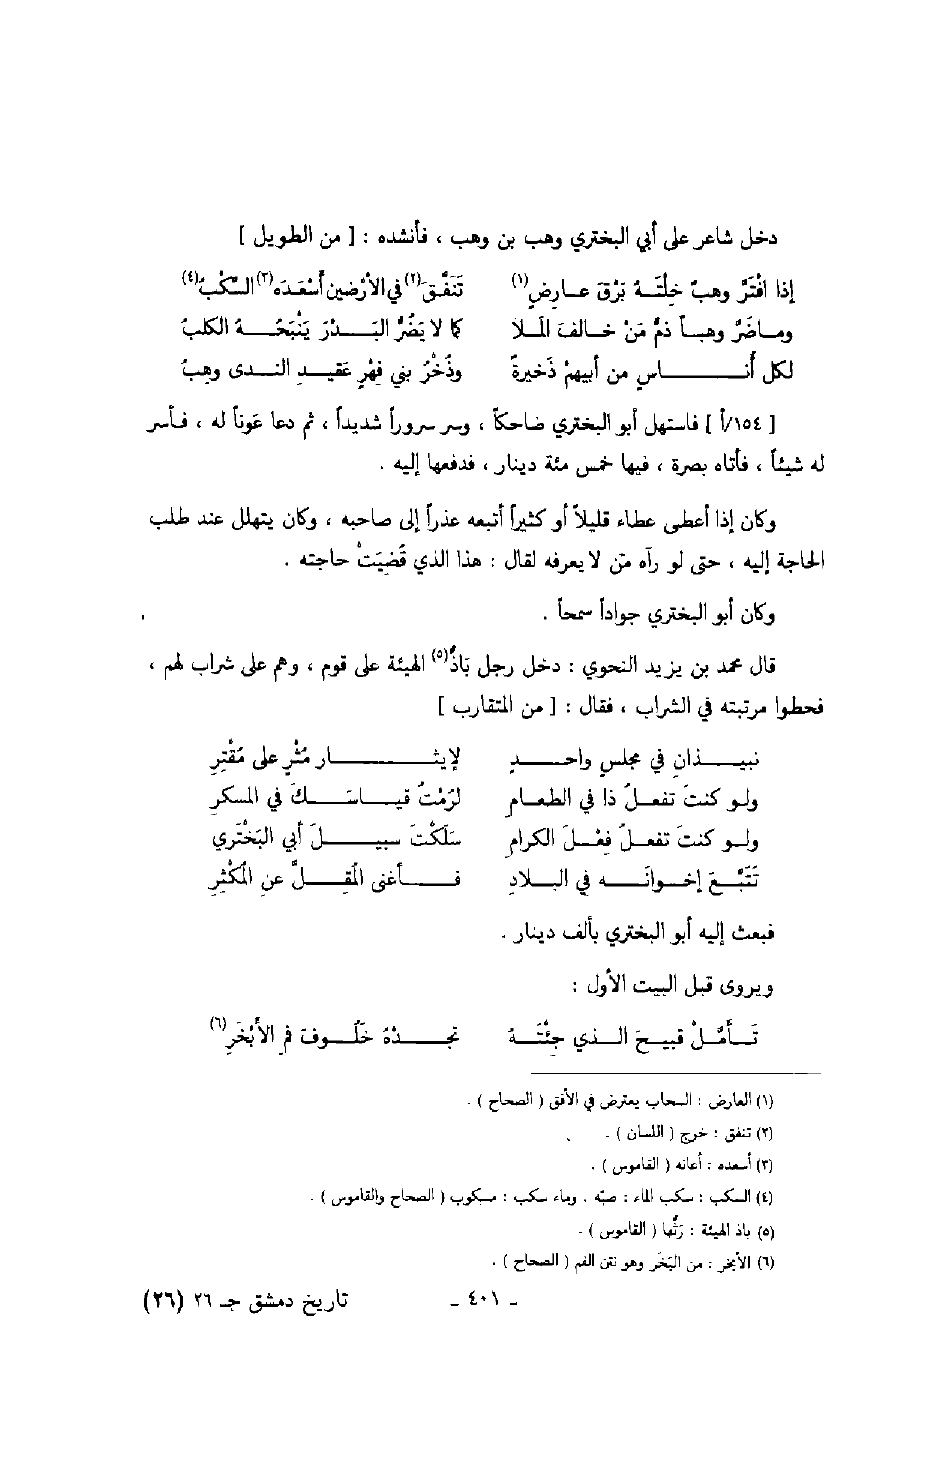 دخل شاعر على أبي البختري وهب بن وهب ، فأنشده : [ من الطويل ]
إذا افْتَرَّ وهبٌ خِلْتَهُ بَرْقَ عارضٍ(١) تَنَفَّقَ(٢) في الأرْضين أسْعَدَه(٣) السَّكْبُ(٤)
وماضَرَّ وهباً ذمُّ مَنْ خالفَ الملا كما لا يَضُرُّ البَدْرَ يَنْبَحُهُ الكلبُ
لكل أُناسٍ من أبيهمْ ذَخيرةٌ وذُخْرُ بني فِهْرٍ عَقيدِ الندى وهبُ
[ ١٥٤/أ ] فاستهل أبو البختري ضاحكاً ، وسر سروراً شديداً ، ثم دعا عَوناً له ، فأسر
له شيئاً ، فأتاه بصرة ، فيها خمس مئة دينار ، فدفعها إليه .
وكان إذا أعطى عطاء قليلاً أو كثيراً أتبعه عذراً إلى صاحبه ، وكان يتهلل عند طلب
الحاجة إليه ، حتى لو رآه مَن لا يعرفه لقال : هذا الذي قُضيَتْ حاجته .
وكان أبو البختري جواداً سمحاً .
قال محمد بن يزيد النحوي : دخل رجل باذُّ(٥) الهيئة على قوم ، وهم على شراب لهم ،
فحطوا مرتبته في الشراب ، فقال : [ من المتقارب ]
نبيذانِ في مجلسٍ واحدٍ لإيثارِ مثْرٍ على مُقْتِرِ
ولو كنتَ تفعلُ ذا في الطعام لزمْتُ قياسَكَ في المسكرِ
ولو كنتَ تفعلُ فِعْلَ الكرامِ سَلَكْتَ سبيلَ أبي البَخْتَري
تَتَبَّعَ إخوانَه في البلادِ فأغنى المُقِلَّ عنِ المُكْثِرِ
فبعث إليه أبو البختري بألف دينار .
ويروى قبل البيت الأول :
تَأمَّلْ قبيحَ الذي جئْتَهُ تجدْهُ خَلُوفَ فمِ الأبْخَرِ(٦)
(١) العارض : السحاب يعترض في الأفق ( الصحاح ) .
(٢) تنفق : خرج ( اللسان ) .
(٣) أسعده : أعانه ( القاموس ) .
(٤) السكب : سكب الماء : صبّه . وماء سكب : مسكوب ( الصحاح والقاموس ) .
(٥) باذ الهيئة : رَثُّها ( القاموس ) .
(٦) الأبخر : من البَخَر وهو نتن الفم ( الصحاح ) .
- ٤٠١ - تاريخ دمشق جـ ٢٦ (٢٦)